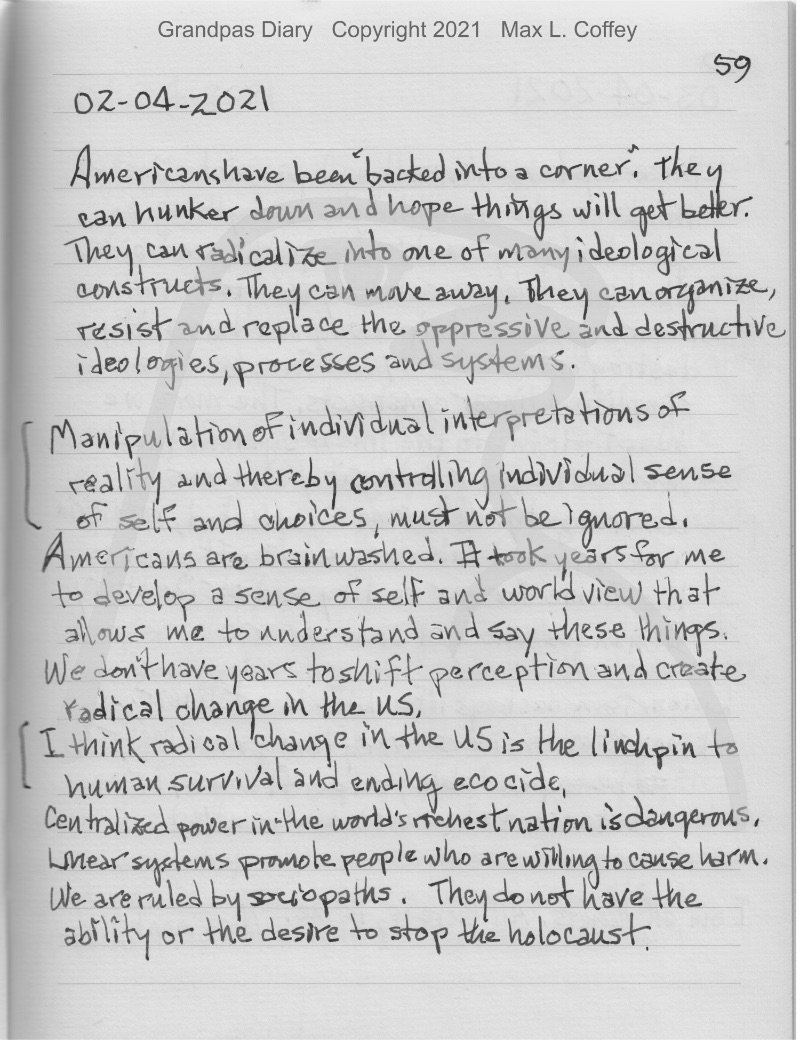 Grandpas Diary Copyright 2021 Max L. Coffey
59
02-04-2021
Americans have been "backed into a corner". They
can hunker down and hope things will get better.
They can radicalize into one of many ideological
constructs. They can move away. They can organize,
resist and replace the oppressive and destructive
ideologies, processes and systems.
Manipulation of individual interpretations of
reality and thereby controlling individual sense
of self and choices, must not be ignored.
Americans are brainwashed. It took years for me
to develop a sense of self and world view that
allows me to understand and say these things.
We don't have years to shift perception and create
radical change in the US.
I think radical change in the US is the linchpin to
human survival and ending ecocide.
Centralized power in the world's richest nation is dangerous.
Linear systems promote people who are willing to cause harm.
We are ruled by sociopaths. They do not have the
ability or the desire to stop the holocaust.